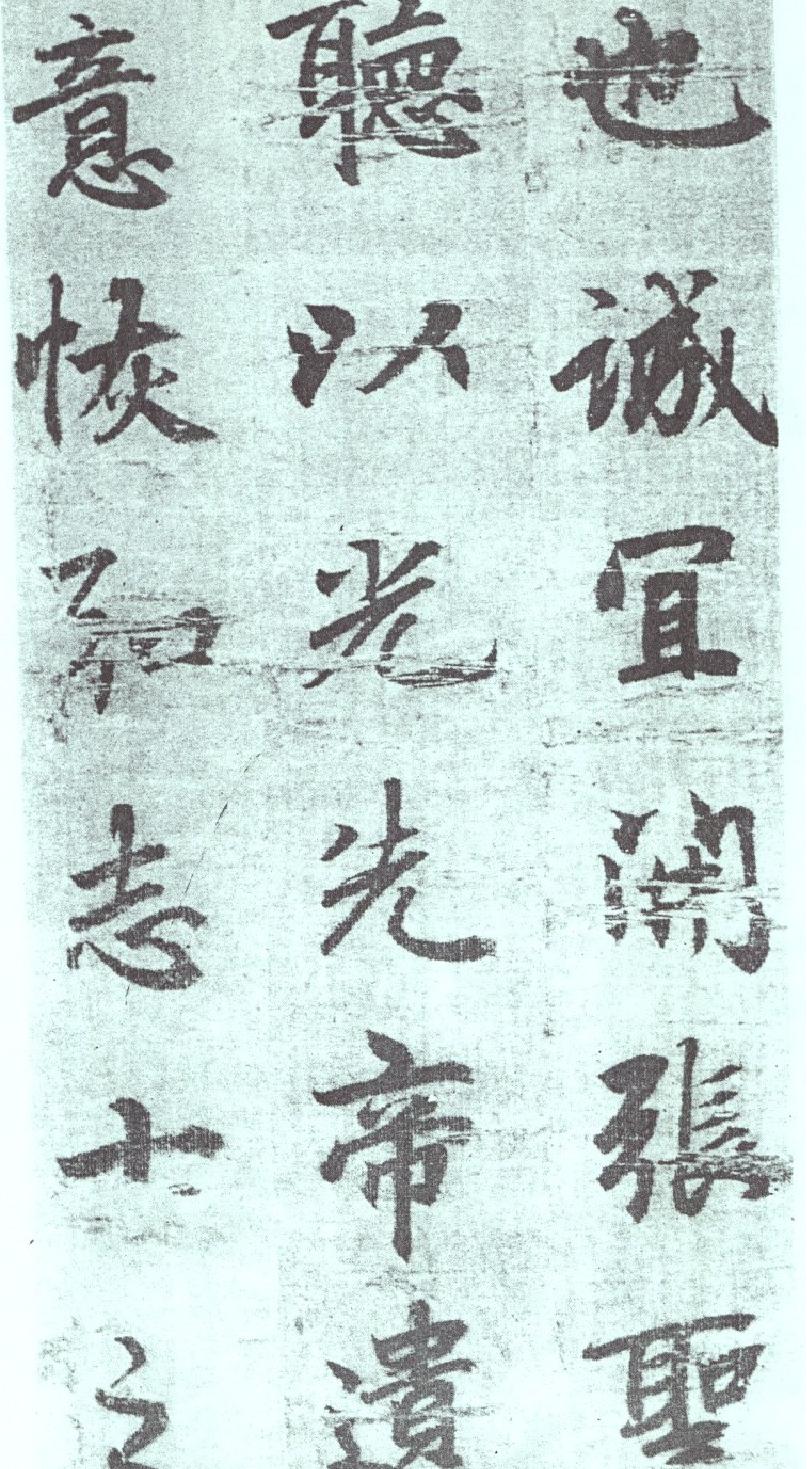 也誠宜開張聖
聽以光先帝遺
意恢弘志士之